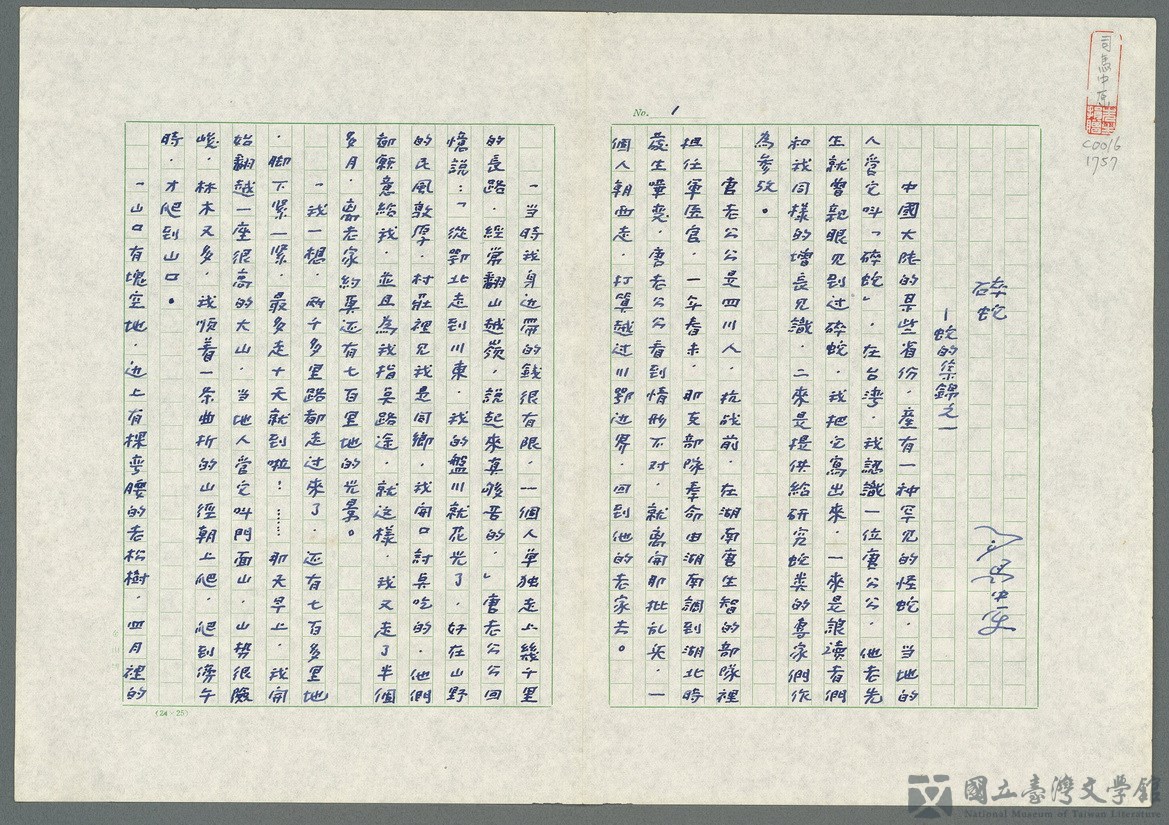 No. 1
司馬中原
C0016
1757
碎蛇
司馬中原
—蛇的集錦之一
中國大陸的某些省份，產有一种罕見的怪蛇，当地的
人管它叫「碎蛇」，在台灣，我認識一位唐公公，他老先
生就曾親眼見到过碎蛇，我把它寫出來，一來是讓讀者們
和我同樣的增長見識，二來是提供給研究蛇类的專家們作
為參攷。
唐老公公是四川人，抗战前，在湖南唐生智的部隊裡
担任軍医官，一年春末，那支部隊奉命由湖南調到湖北時
發生嘩变，唐老公公看到情形不对，就离開那批乱兵，一
個人朝西走，打算越过川鄂边界，回到他的老家去。
「当時我身边帶的錢很有限，一個人單独走上幾千里
的長路，經常翻山越嶺，說起來真够苦的。」唐老公公回
憶說：「從鄂北走到川東，我的盤川就花光了，好在山野
的民風敦厚，村莊裡見我是同鄉，我開口討臭吃的，他們
都願意給我，並且為我指臭路途，就这樣，我又走了半個
多月，离老家約莫还有七百里地的光景。
「我一想，兩千多里路都走过來了，还有七百多里地
，脚下紧一紧，最多走十天就到啦！……那天早上，我開
始翻越一座很高的大山，当地人管它叫門面山，山势很險
峻，林木又多，我順着一条曲折的山徑朝上爬，爬到傍午
時，才爬到山口。
「山口有塊空地，边上有棵弯腰的老松樹，四月裡的
(24×25)
國立臺灣文學館
National Museum of Taiwan Literature